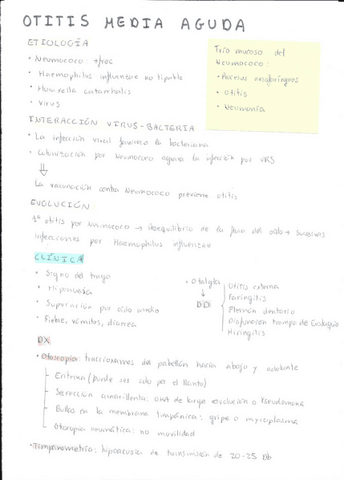 OTITIS MEDIA AGUDA
ETIOLOGÍA
• Neumococo: +froc
• Haemophilus influenzae no tipable
• Moraxella catarrhalis
• Virus
Trío mucoso del
Neumococo:
• nasofaríngeos
• Otitis
• Neumonía
INTERACCIÓN VIRUS-BACTERIA
• La infección viral favorece la bacteriana
• Colonización por Neumococo agrava la infección por VRS
⇓
La vacunación contra Neumococo previene otitis
EVOLUCIÓN
1ª otitis por Neumococo → desequilibrio de la flora del oído → sucesivas
infecciones por Haemophilus influenzae
CLÍNICA
• Signo del trago
• Hipoacusia
• Supuración por oído medio
• Fiebre, vómitos, diarrea
• Otalgia
↓
DD
Otitis externa
Faringitis
Flemón dentario
Disfunción trompa de Eustaquio
Miringitis
DX
• Otoscopia: traccionamos del pabellón hacia abajo y adelante
- Eritema (puede ser solo por el llanto)
- Secreción amarillenta: de larga evolución o Pseudomona
- Bullas en la membrana timpánica: gripe o mycoplasma
- Otoscopia neumática: no movilidad
• Timpanometría: hipoacusia de transmisión de 20-25 db